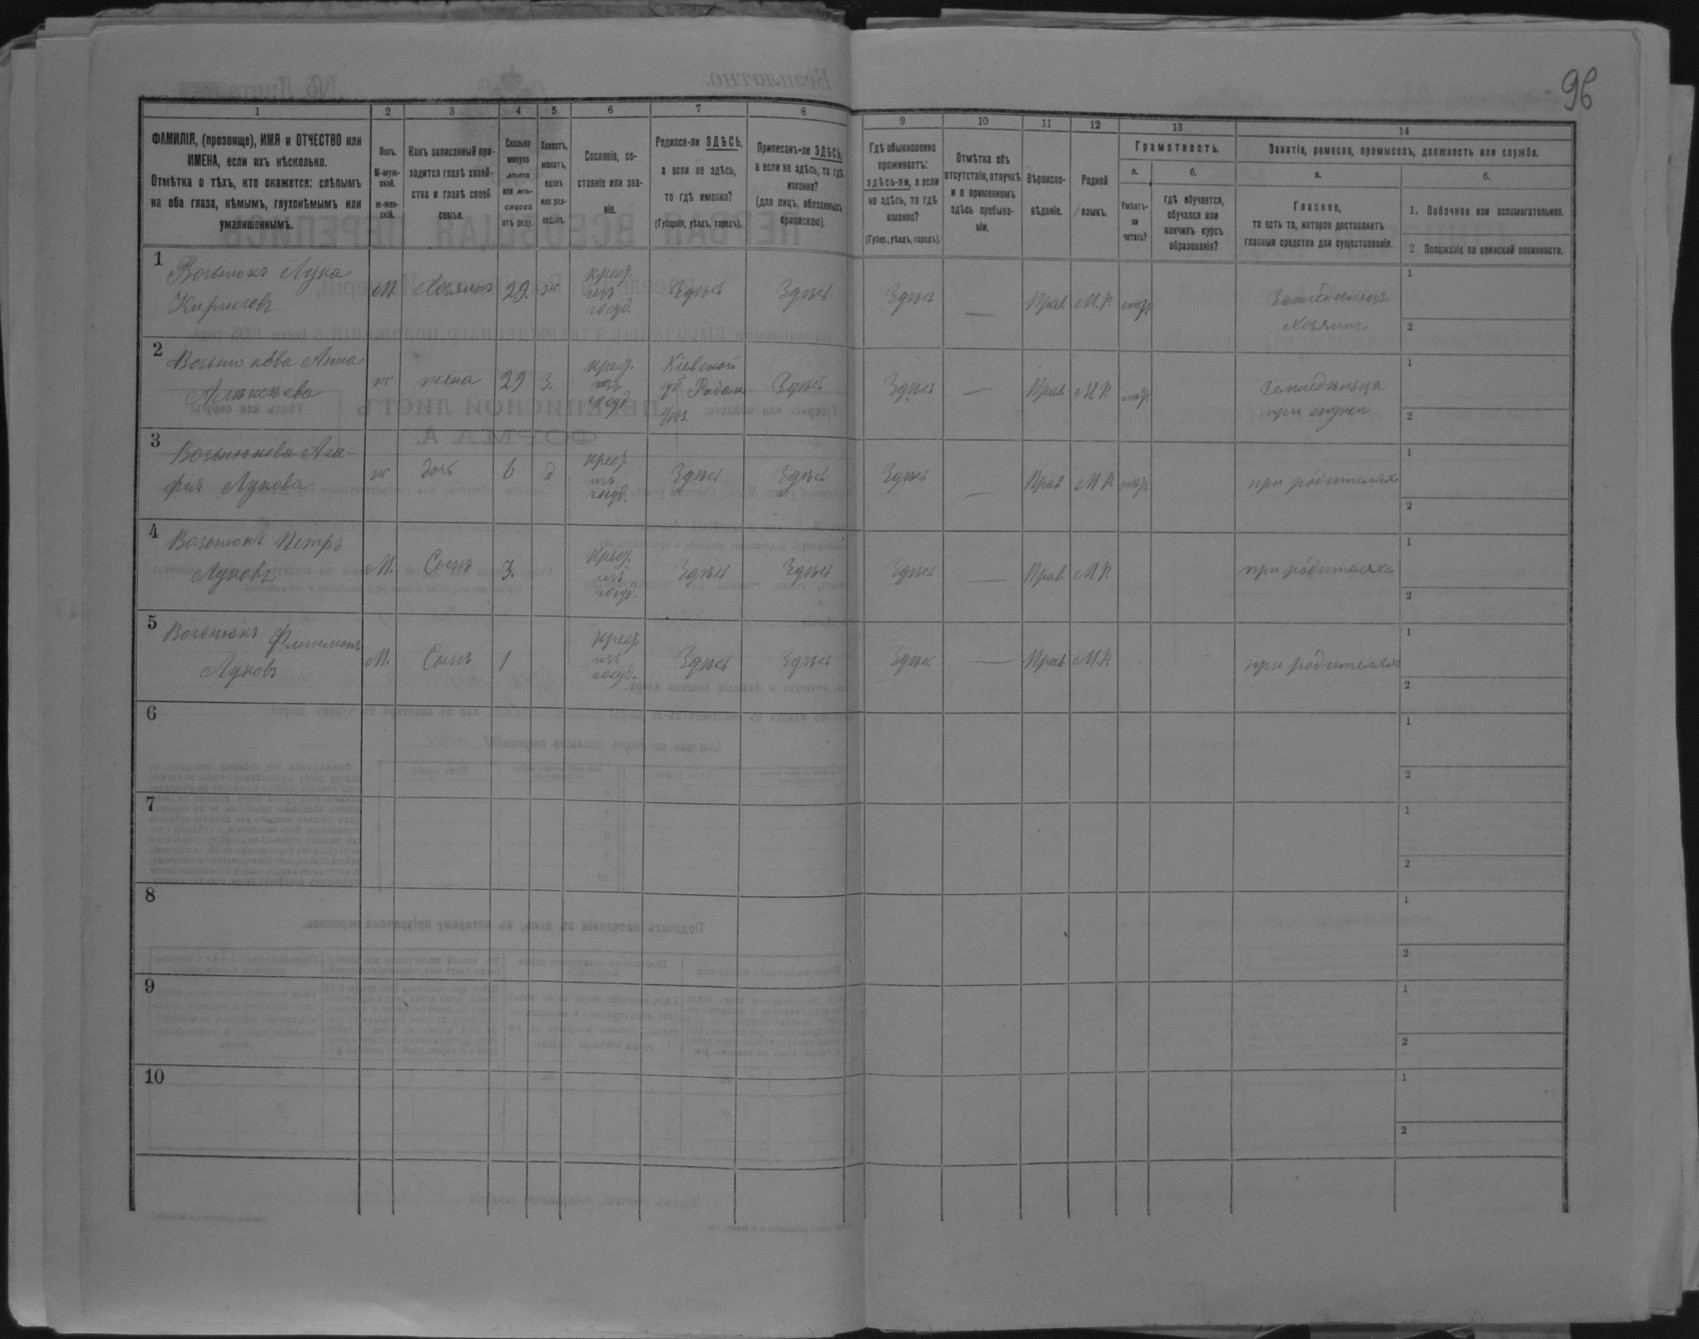 96
1
2
3
4
5
6
7
8
9
10
11
12
13
14
ФАМИЛІЯ, (прозвище), ИМЯ и ОТЧЕСТВО или
ИМЕНА, если ихъ нѣсколько.
Отмѣтка о тѣхъ, кто окажется: слѣпымъ
на оба глаза, нѣмымъ, глухонѣмымъ или
умалишоннымъ.
Полъ.
М-муж-
ской.
ж-жен-
скій.
Какъ записанный при-
ходится главѣ хозяй-
ства и главѣ своей
семьи.
Сколько
минуло
лѣтъ
или мѣ-
сяцевъ
отъ роду.
Холостъ,
женатъ,
вдовъ
или раз-
веденъ.
Сословіе, со-
стояніе или зва-
ніе.
Родился-ли ЗДѢСЬ,
а если не здѣсь,
то гдѣ именно?
(Губернія, уѣздъ, городъ).
Приписанъ-ли ЗДѢСЬ,
а если не здѣсь, то гдѣ
именно?
(для лицъ, обязанныхъ
припискою).
Гдѣ обыкновенно
проживаетъ:
здѣсь-ли, а если
не здѣсь, то гдѣ
именно?
(Губер., уѣздъ, городъ).
Отмѣтка объ
отсутствіи, отлучкѣ
и о временномъ
здѣсь пребыва-
ніи.
Вѣроиспо-
вѣданіе.
Родной
языкъ.
Грамотность.
а.
Умѣетъ-
ли
читать?
б.
гдѣ обучается,
обучался или
кончилъ курсъ
образованія?
Занятіе, ремесло, промыселъ, должность или служба.
а.
Главное,
то есть то, которое доставляетъ
главныя средства для существованія.
б.
1. Побочное или вспомогательное.
2 Положеніе по воинской повинности.
1 Лука
М. Хозяинъ 29. ж крест. изъ госуд. Здѣсь Здѣсь Здѣсь — Прав. М.Р. нѣтъ
Хозяинъ
1
2
2 Анна
ж жена 29 з. крест. изъ госуд. Кіевской губ. Здѣсь Здѣсь — Прав М.Р. нѣтъ
при мужѣ
1
2
3 Ага-
фія Лукова ж дочь 6 д крест. изъ госуд. Здѣсь Здѣсь Здѣсь — Прав М.Р. нѣтъ при родителяхъ
1
2
4 Петръ
Луковъ М. Сынъ 3. крест. изъ госуд. Здѣсь Здѣсь Здѣсь — Прав М.Р. при родителяхъ
1
2
5 Филимонъ
Луковъ М. Сынъ 1 крест. изъ госуд. Здѣсь Здѣсь Здѣсь — Прав М.Р. при родителяхъ
1
2
6
1
2
7
1
2
8
1
2
9
1
2
10
1
2